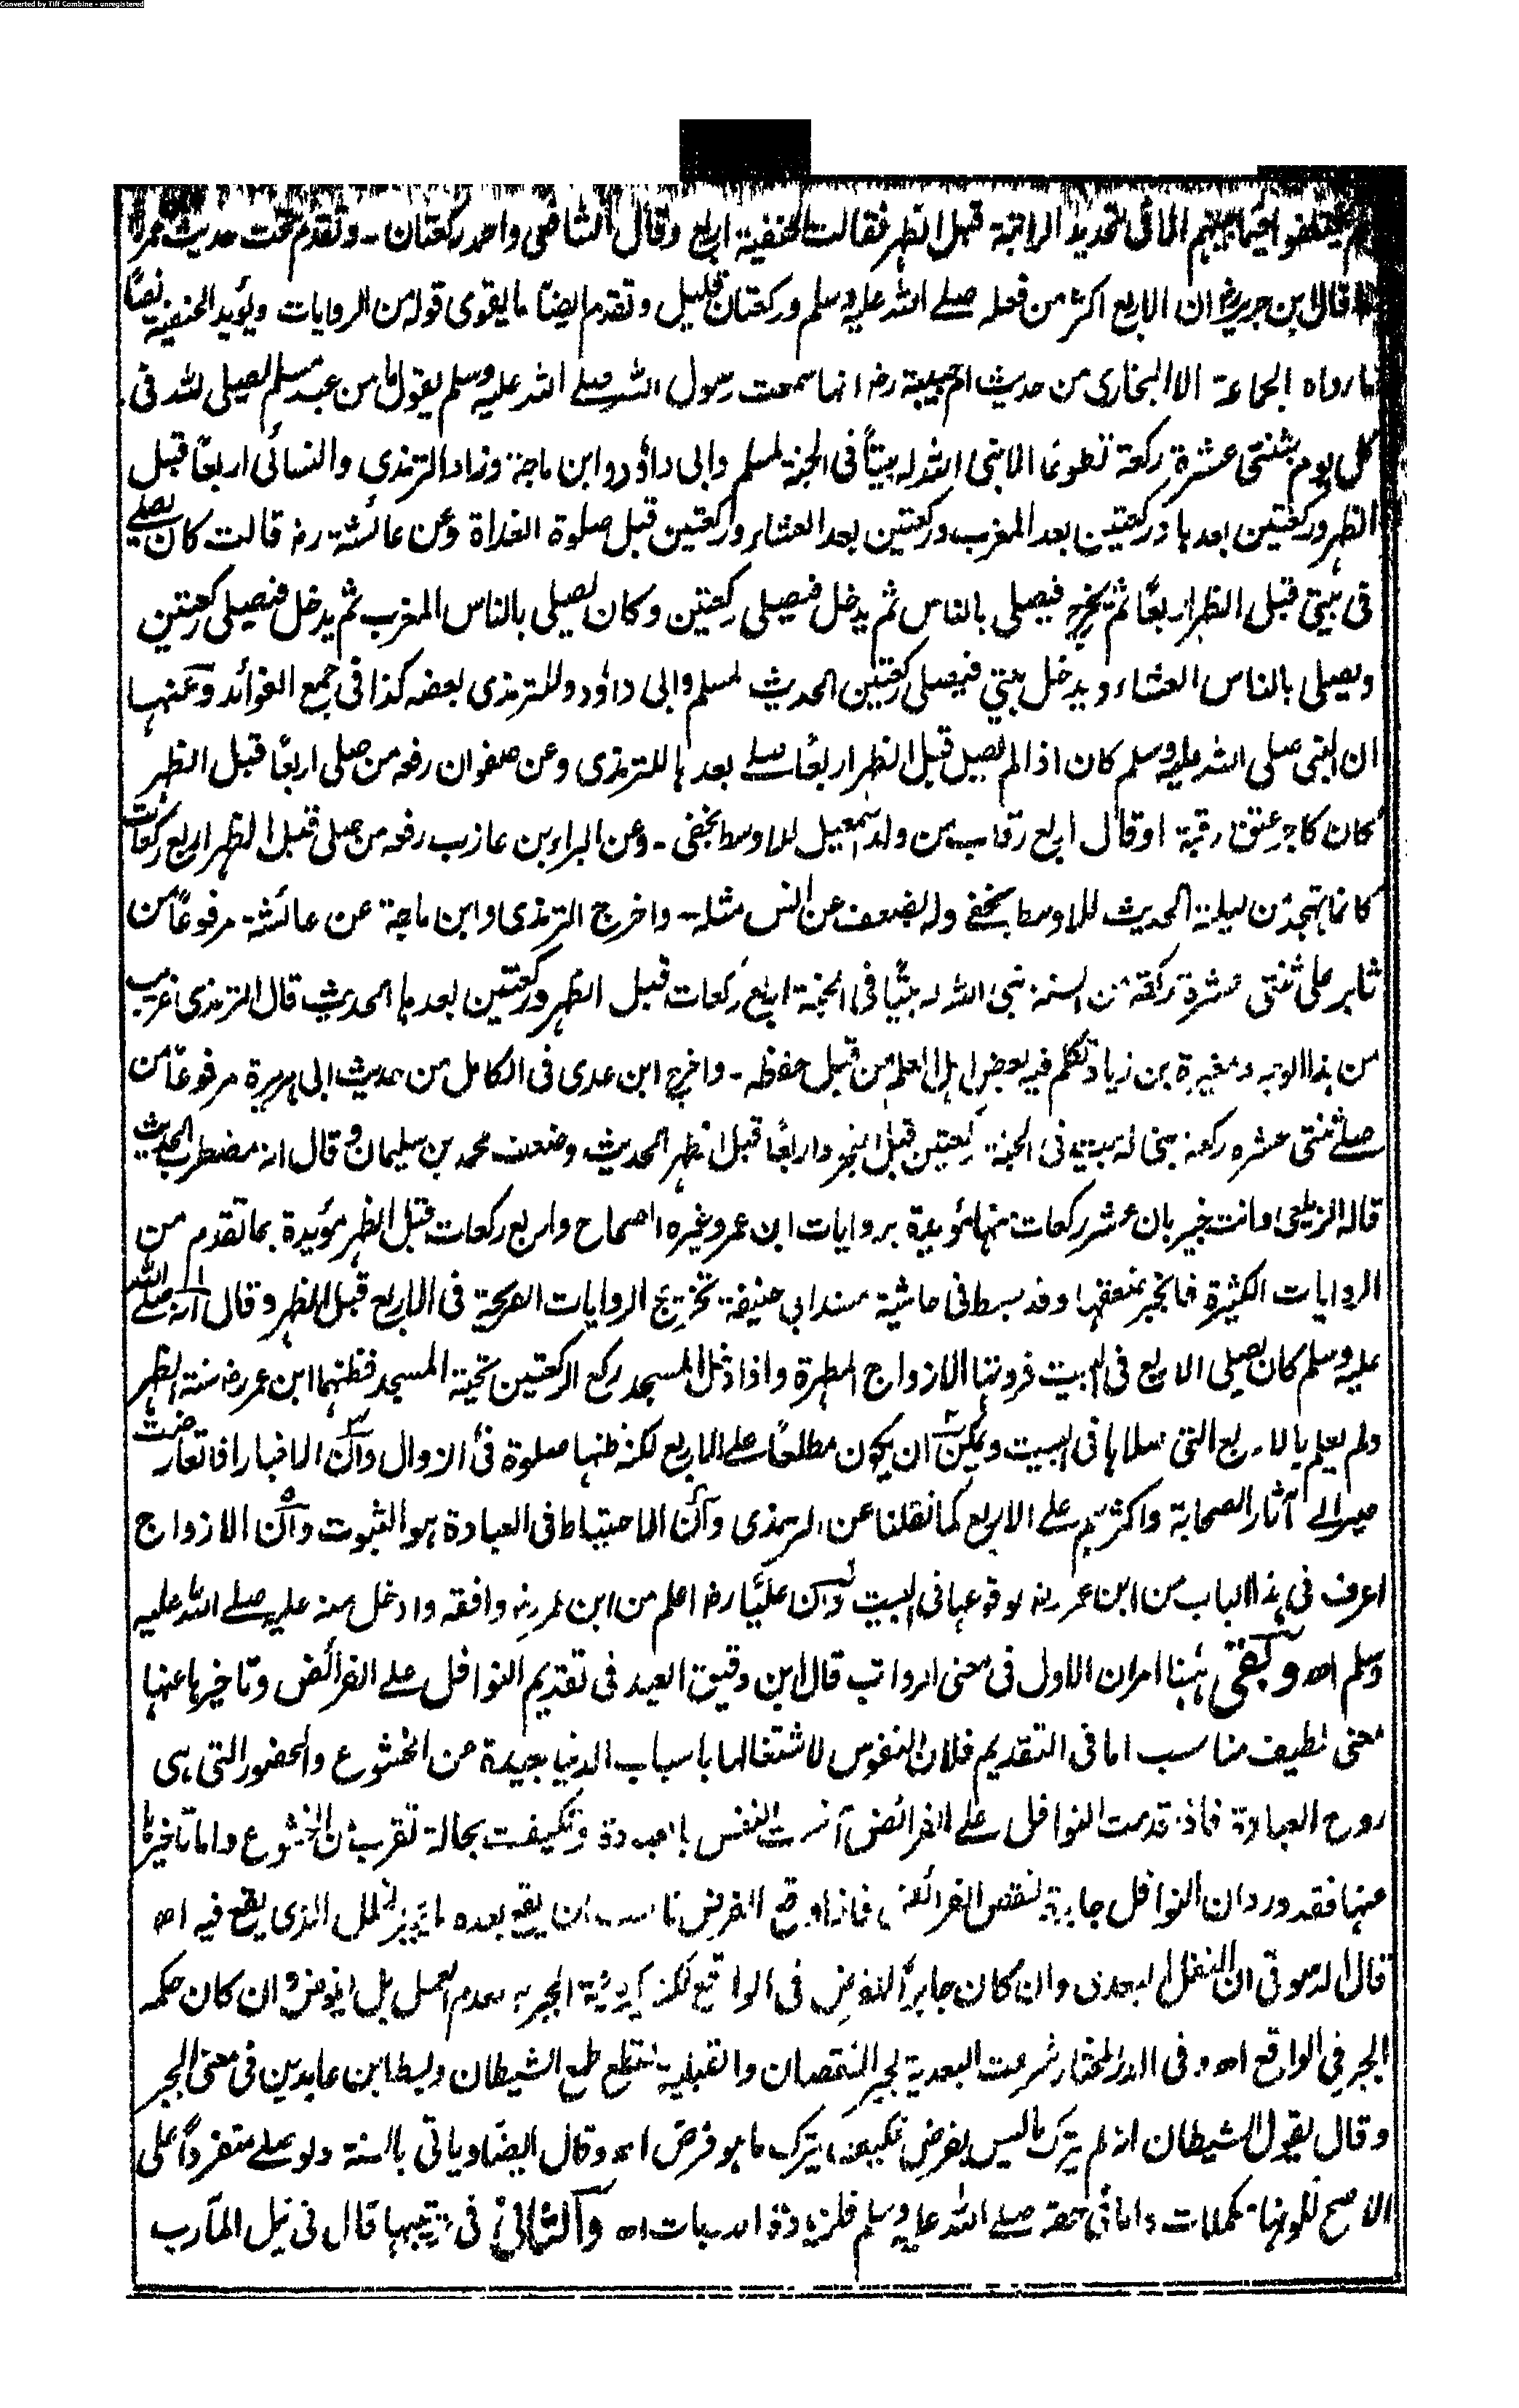 Converted by Tiff Combine - unregistered
يختلفوا فيما بينهم الا فى تحديد الراتبة قبل الظهر فقالت الحنفية اربع وقال الشافعى واحمد ركعتان - وتقدم تحت حديث عمر
قال ابن جرير ان الاربع اكثر من فعله صلے الله عليه وسلم وركعتان قليل وتقدم ايضا ما يقوى قوله من الروايات ويؤيد الحنفية نصا
ما رواه الجماعة الا البخارى من حديث ام حبيبة رض انها سمعت رسول الله صلے الله عليه وسلم يقول ما من عبد مسلم يصلى لله فى
كل يوم ثنتى عشرة ركعة تطوعا الا بنى الله له بيتاً فى الجنة لمسلم وابى داؤد وابن ماجة وزاد الترمذى والنسائى اربعا قبل
الظهر وركعتين بعدها وركعتين بعد المغرب وركعتين بعد العشاء وركعتين قبل صلوة الغداة وعن عائشة رض قالت كان يصلے
فى بيتى قبل الظهر اربعا ثم يخرج فيصلى بالناس ثم يدخل فيصلى ركعتين وكان يصلى بالناس المغرب ثم يدخل فيصلى ركعتين
ويصلى بالناس العشاء ويدخل بيتى فيصلى ركعتين الحديث لمسلم وابى داود وللترمذى بعضه كذا فى جمع الفوائد وعنها
ان النبى صلى الله عليه وسلم كان اذا لم يصل قبل الظهر اربعا صلے بعدها للترمذى وعن صفوان رفعه من صلى اربعا قبل الظهر
كان كاجر عتق رقبة او قال اربع رقاب من ولد اسمعيل للاوسط بخفى - وعن البراء بن عازب رفعه من صلى قبل الظهر اربع ركعات
كانما تهجدن ليلته الحديث للاوسط بخفى وله بضعف عن انس مثله - واخرج الترمذى وابن ماجة عن عائشة مرفوعا من
ثابر على ثنتى عشرة ركعة من السنة بنى الله له بيتا فى الجنة اربع ركعات قبل الظهر وركعتين بعدها الحديث قال الترمذى غريب
من هذا الوجه ومغيرة بن زياد تكلم فيه بعض اهل العلم من قبل حفظه - واخرج ابن عدى فى الكامل من حديث ابى هريرة مرفوعا من
صلے ثنتى عشرة ركعة بنى له بيت فى الجنة ركعتين قبل الفجر واربعا قبل الظهر الحديث وضعف محمد بن سليمان وقال انه مضطرب الحديث
قاله الزيلعى وانت خبير بان عشر ركعات منها مؤيدة بروايات ابن عمر وغيره الصحاح واربع ركعات قبل الظهر مؤيدة بما تقدم من
الروايات الكثيرة فانجبر ضعفها وقد بسط فى حاشية مسند ابى حنيفة تخريج الروايات الصريحة فى الاربع قبل الظهر وقال انه صلے الله
عليه وسلم كان يصلى الاربع فى البيت فروتها الازواج المطهرة واذا دخل المسجد ركع الركعتين تحية المسجد فظنهما ابن عمر رض سنة الظهر
ولم يعلم بالاربع التى صلاها فى البيت ويمكن ان يكون مطلعا على الاربع لكنه ظنها صلوة فئ الزوال وان الاخبار اذا تعارضت
صير الے آثار الصحابة واكثرهم على الاربع كما نقلنا عن الترمذى وان الاحتياط فى العبادة هو الثبوت وان الازواج
اعرف فى هذا الباب من ابن عمر رض لوقوعها فى البيت وان عليا رض اعلم من ابن عمر رض وافقه وادخل منه عليه صلے الله عليه
وسلم اه وبقى ههنا امران الاول فى معنى الرواتب قال ابن دقيق العيد فى تقديم النوافل على الفرائض وتاخيرها عنها
معنى لطيف مناسب اما فى التقديم فلان النفوس لاشتغالها باسباب الدنيا بعيدة من الخشوع والحضور التى هى
روح العبادة فاذا قدمت النوافل على الفرائض آنست النفس بالعبادة وتكيفت بحالة تقرب من الخشوع واما تاخيرها
عنها فقد ورد ان النوافل جابرة لنقص الفرائض فاذا وقع الفرض ناسب ان يقع بعده ما يجبر الخلل الذى يقع فيه اه
قال الدسوقى ان النفل البعدى وان كان جابرا للفرض فى الواقع لكنه يكره نية الجبر به لعدم العمل بل يفوض وان كان حكمه
الجبر فى الواقع اه وفى الدر المختار شرعت البعدية لجبر النقصان والقبلية لقطع طمع الشيطان وبسط ابن عابدين فى معنى الجبر
وقال يقول الشيطان انه لم يترك ما ليس بفرض فكيف يترك ما هو فرض اه وقال ايضا وياتى بالسنة ولو صلے منفردا على
الاصح لكونها مكملات واما فى حقه صلے الله عليه وسلم فلزيادة الدرجات اه والثانى فى حكمها قال فى نيل المآرب